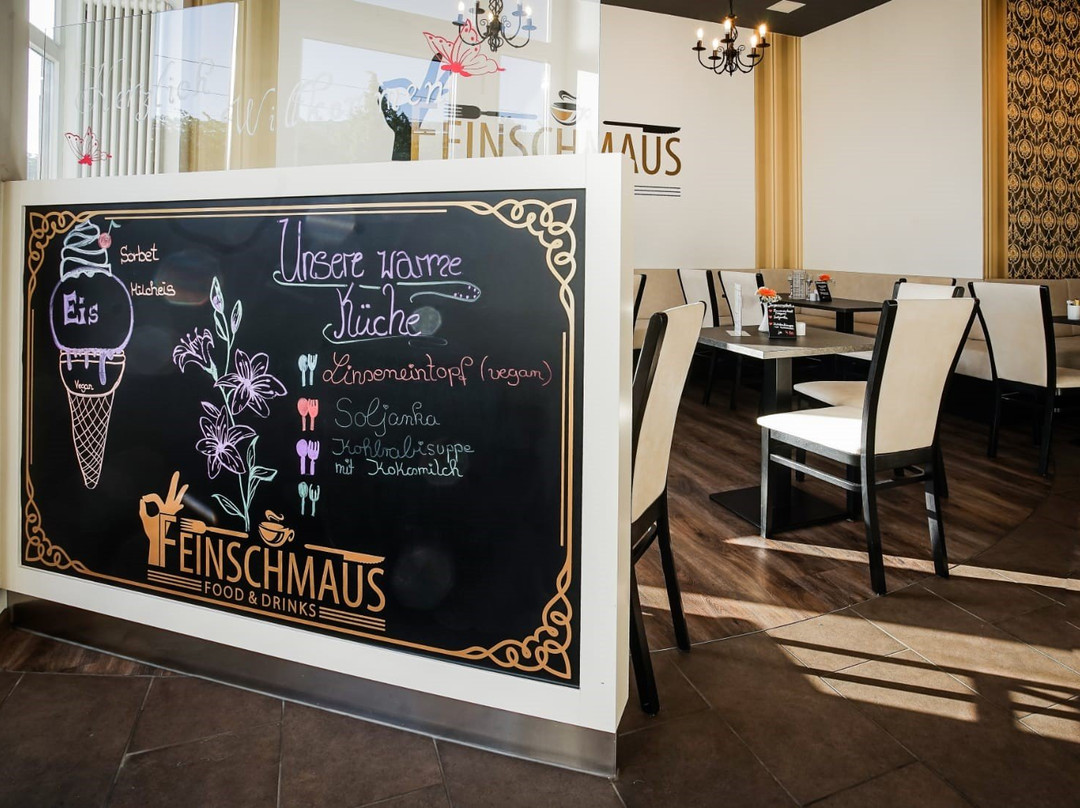 Herzlich
Willkommen
FEINSCHMAUS
Sorbet
Milcheis
Eis
Vegan
Unsere warme
Küche
Linseneintopf (vegan)
Soljanka
Kohlrabisuppe
mit Kokosmilch
FEINSCHMAUS
FOOD & DRINKS